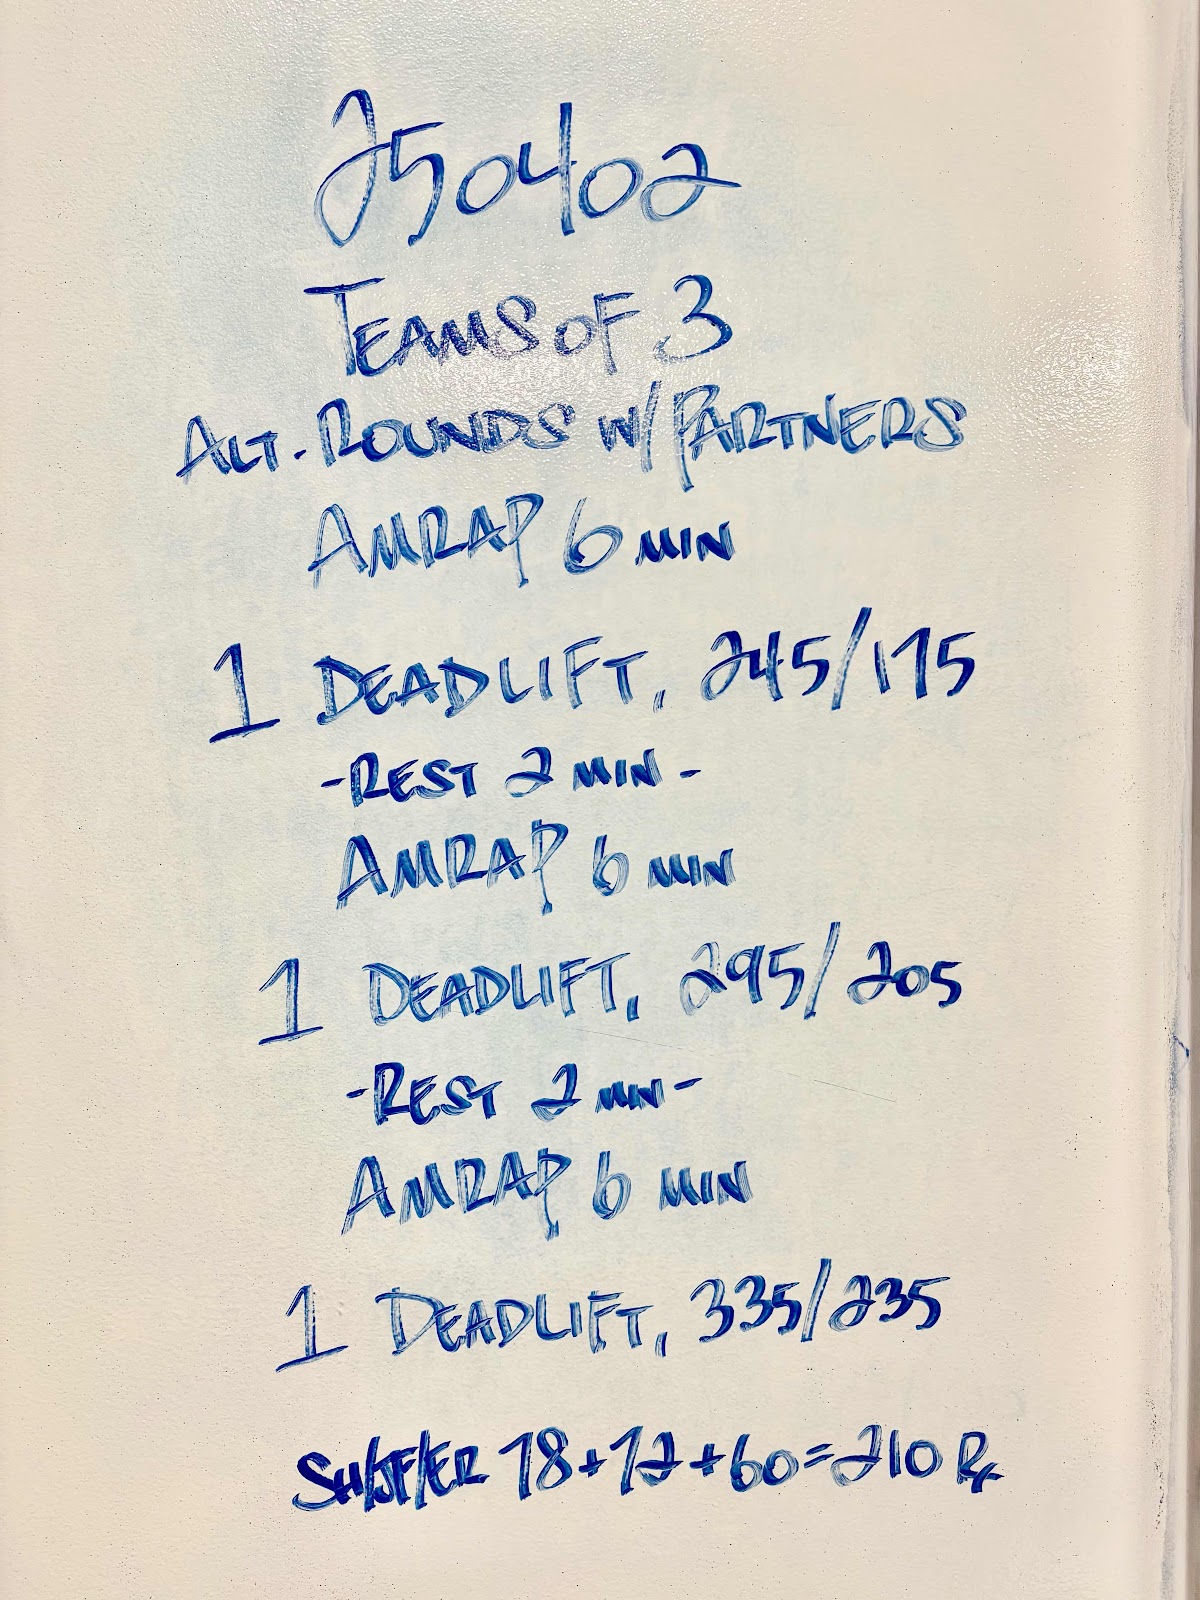 250402
TEAMS OF 3
ALT. ROUNDS W/ PARTNERS
AMRAP 6 MIN
1 DEADLIFT, 245/175
-REST 2 MIN-
AMRAP 6 MIN
1 DEADLIFT, 295/205
-REST 2 MIN-
AMRAP 6 MIN
1 DEADLIFT, 335/235
SH/JF/ER 78+72+60=210 Rx